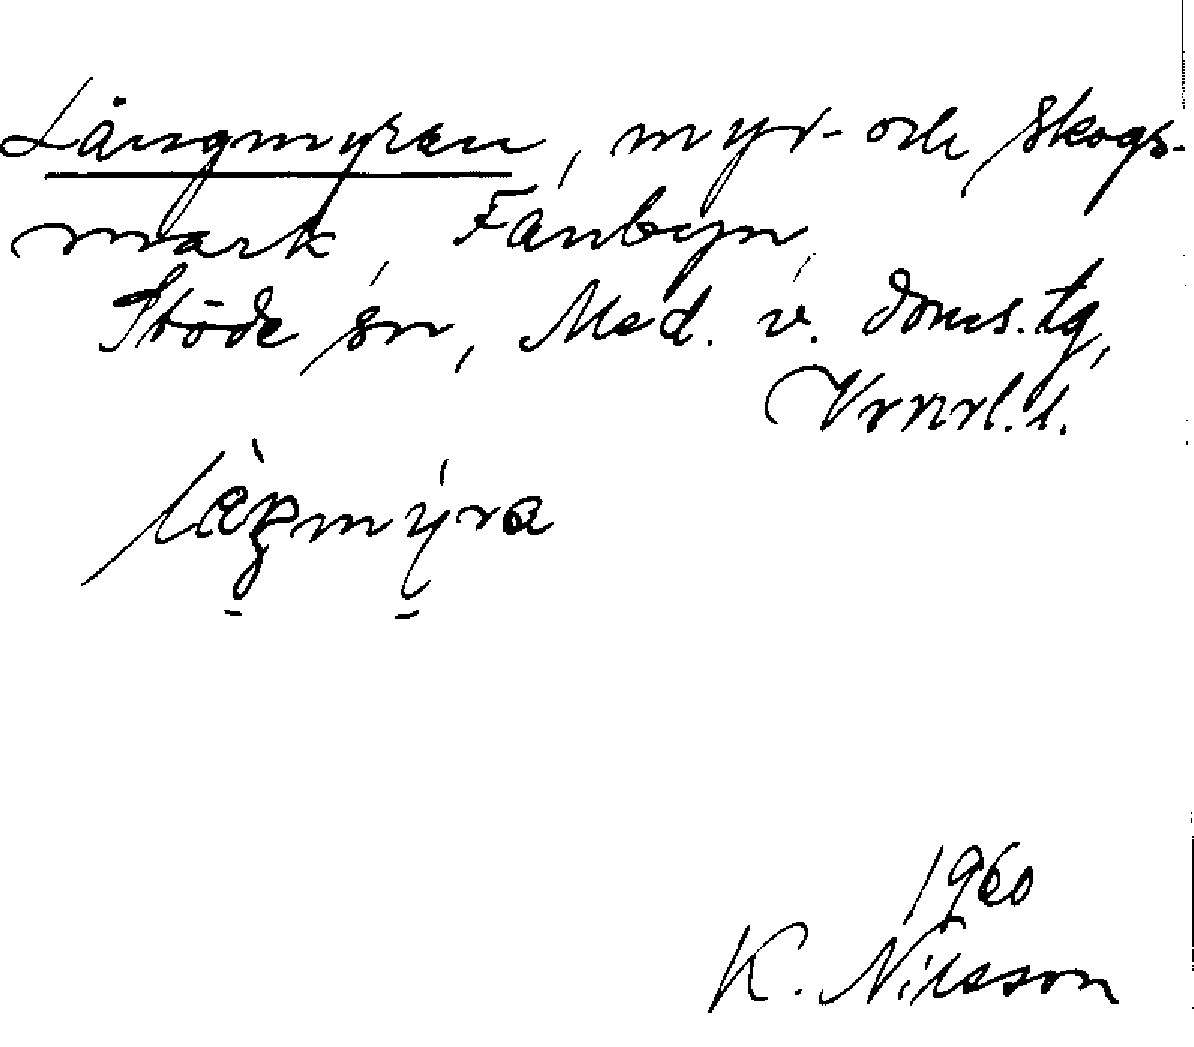 Långmyran, myr- och skogs-
mark, Fanbyn,
Stöde sn, Med. v. doms. tg,
Vrnrl. l.
1960
K. Nilsson